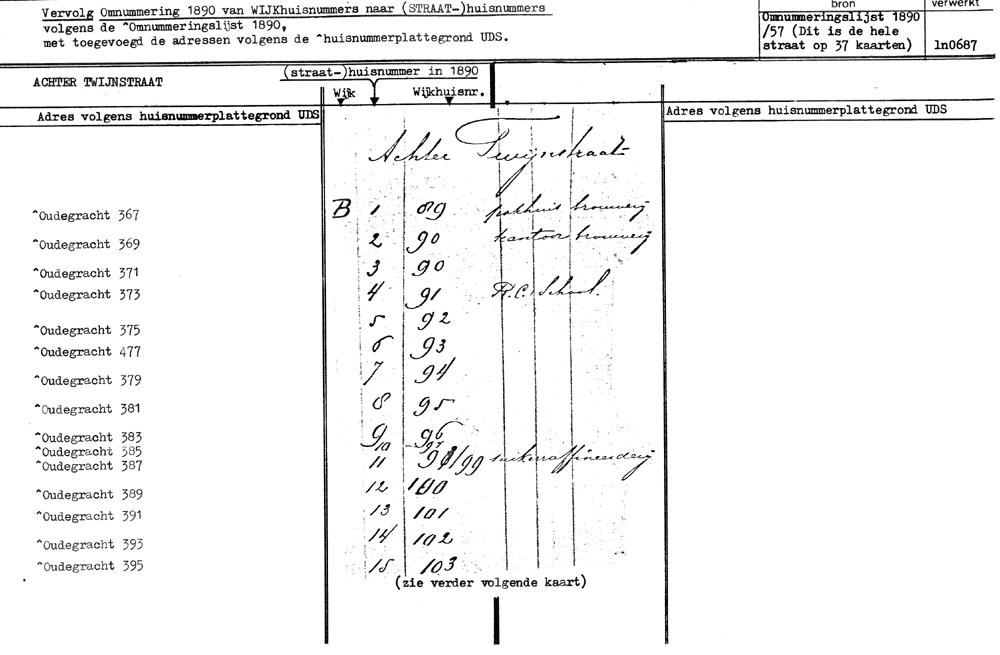 Vervolg Omnummering 1890 van WIJKhuisnummers naar (STRAAT-)huisnummers
volgens de ^Omnummeringslijst 1890,
met toegevoegd de adressen volgens de ^huisnummerplattegrond UDS.
bron
verwerkt
Omnummeringslijst 1890
/57 (Dit is de hele
straat op 37 kaarten)
1n0687
ACHTER TWIJNSTRAAT
(straat-)huisnummer in 1890
Wijk
Wijkhuisnr.
Adres volgens huisnummerplattegrond UDS
Adres volgens huisnummerplattegrond UDS
Achter Twijnstraat
^Oudegracht 367 B 1 89 pakhuis brouwerij
^Oudegracht 369 2 90 kantoor brouwerij
^Oudegracht 371 3 90
^Oudegracht 373 4 91 R.C. School.
^Oudegracht 375 5 92
^Oudegracht 477 6 93
^Oudegracht 379 7 94
^Oudegracht 381 8 95
^Oudegracht 383 9 96
^Oudegracht 385 10 97
^Oudegracht 387 11 98/99 suikerraffineerderij
^Oudegracht 389 12 100
^Oudegracht 391 13 101
^Oudegracht 393 14 102
^Oudegracht 395 15 103
(zie verder volgende kaart)